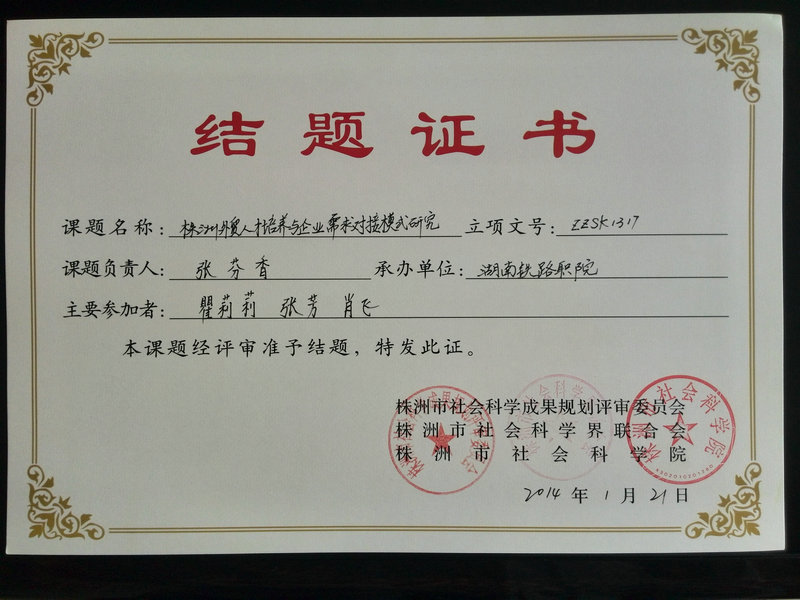 结题证书
课题名称：株洲外贸人才培养与企业需求对接模式研究 立项文号：ZZSK1317
课题负责人：张芬香 承办单位：湖南铁路职院
主要参加者：瞿莉莉 张芳 肖飞
本课题经评审准予结题，特发此证。
株洲市社会科学成果规划评审委员会
株洲市社会科学界联合会
株洲市社会科学院
2014年1月21日
株洲市社会科学院